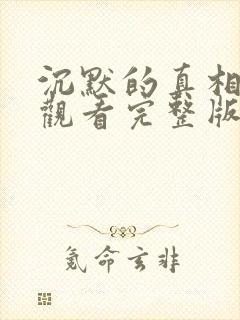 沉默的真相
觀看完整版
氪命玄非